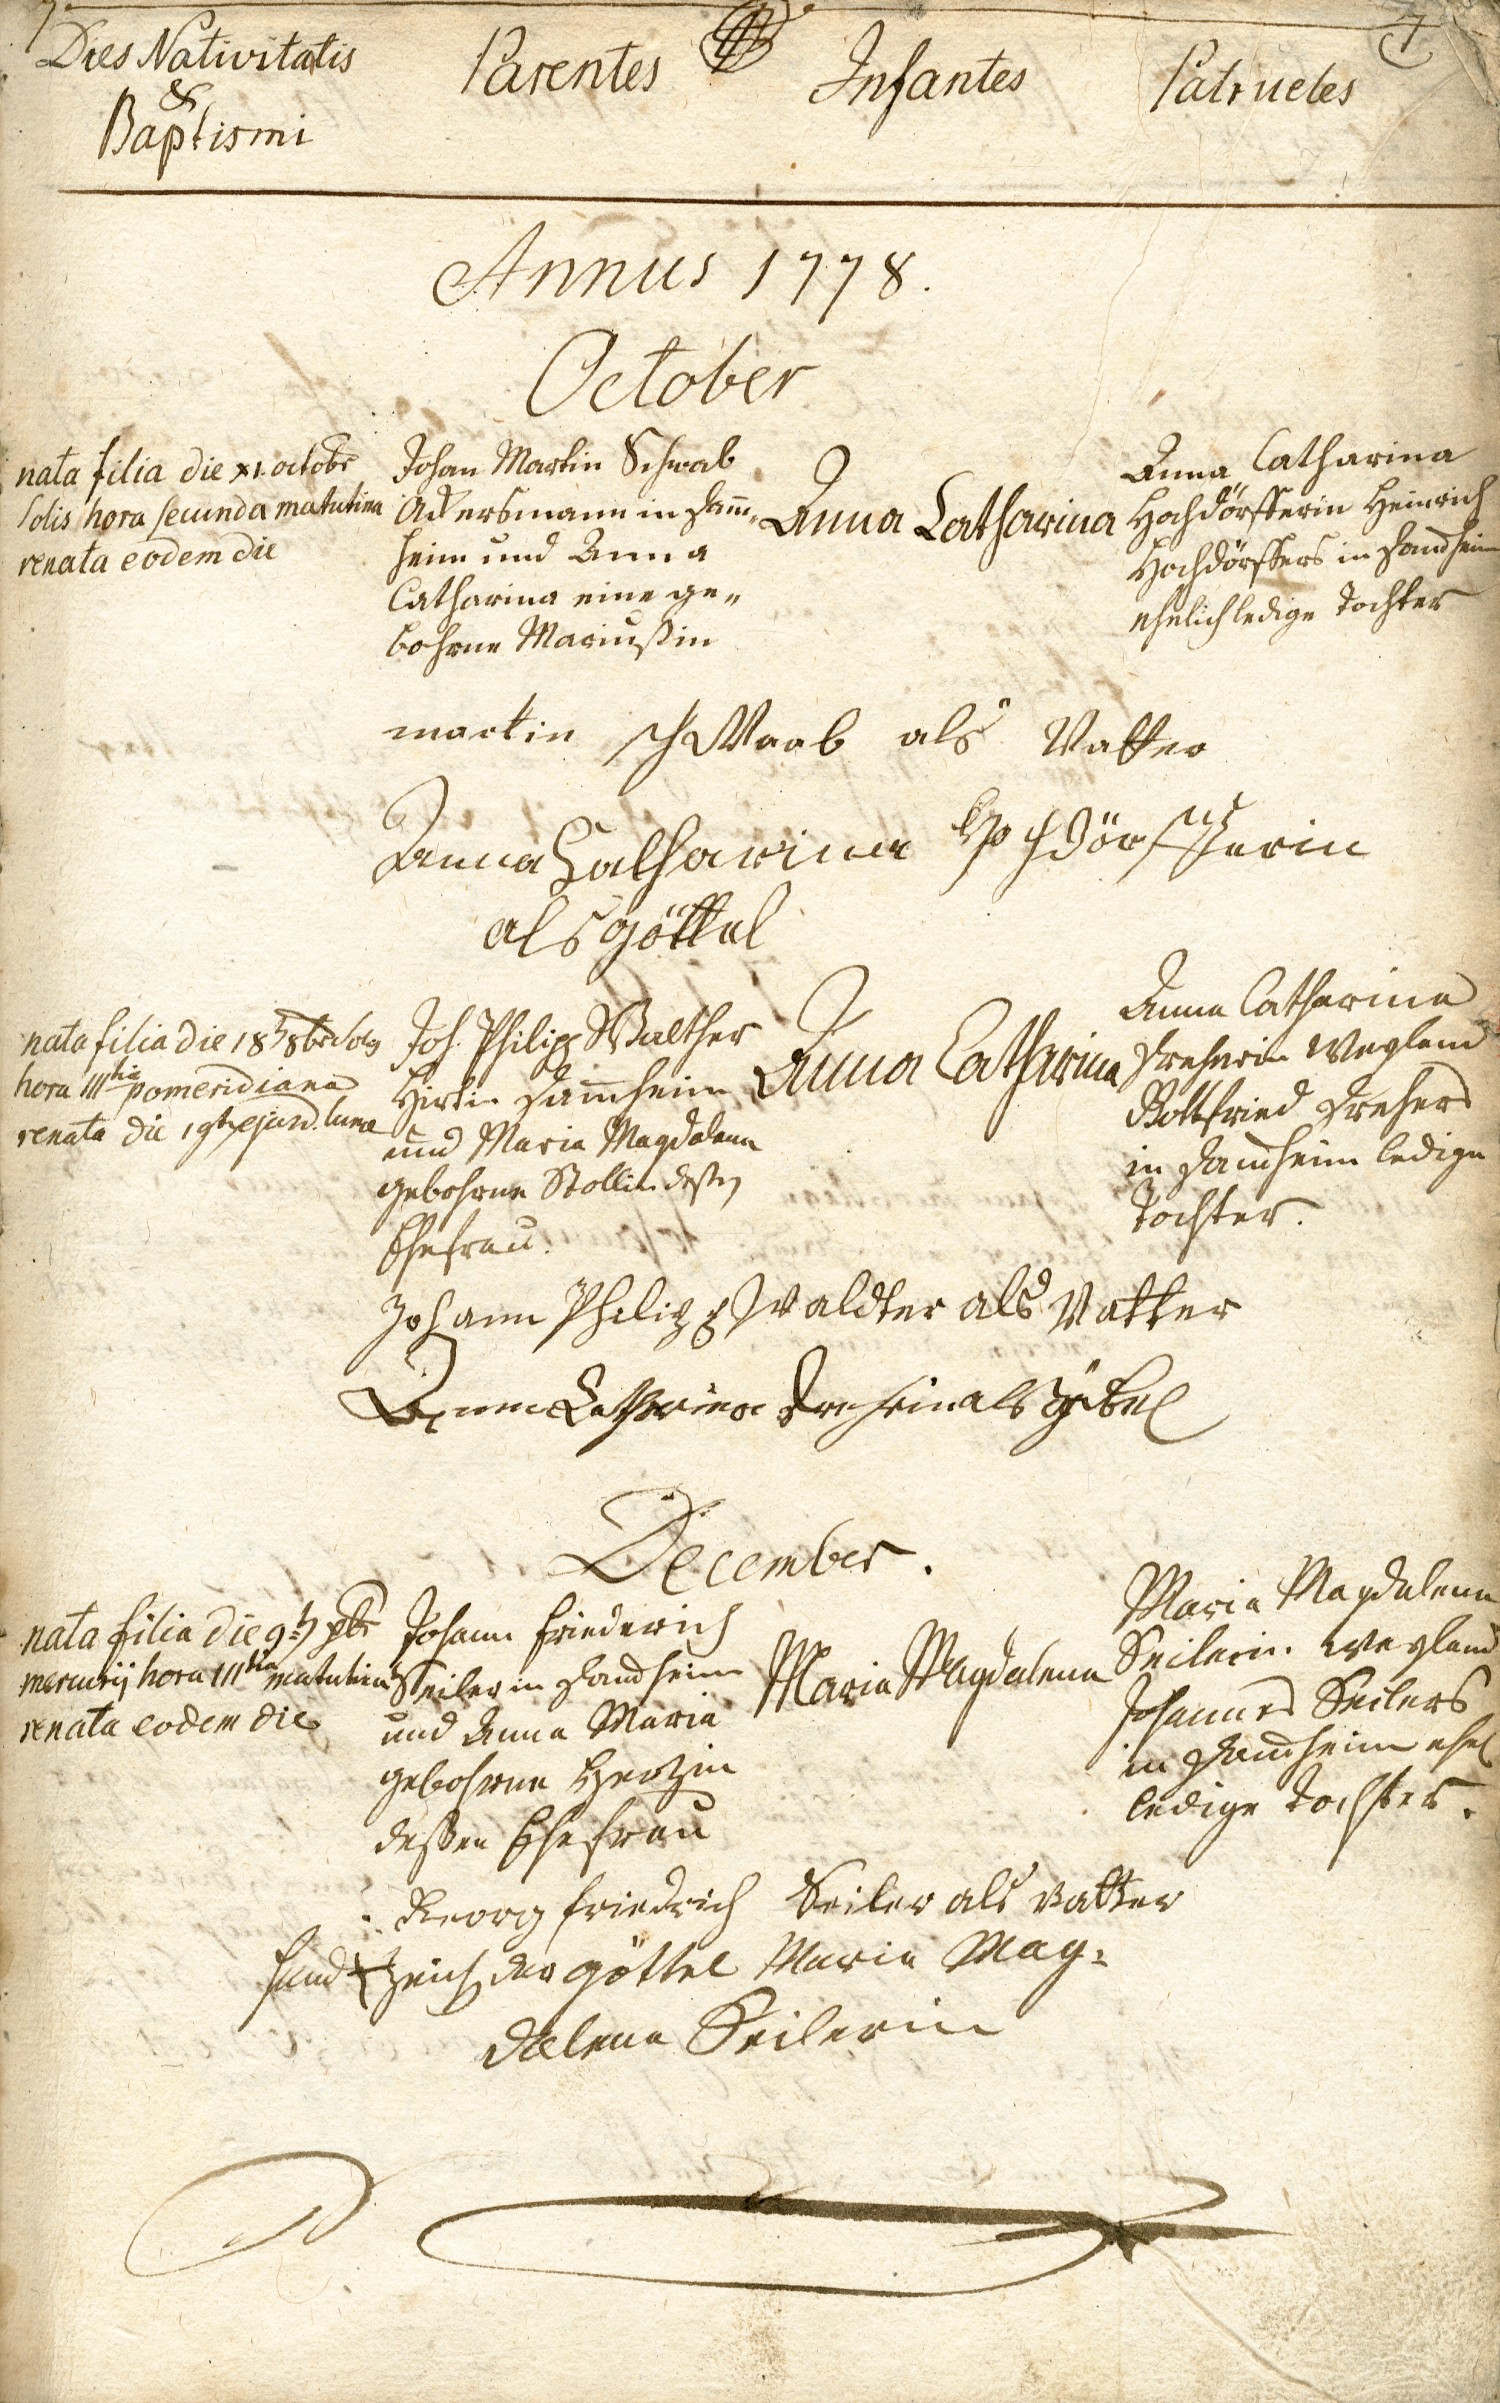 Dies Nativitatis & Baptismi
Parentes
Infantes
Patrueles
7
Annus 1778.
October
nata filia die XI. octobr
solis hora secunda matutina
renata eodem die
Johan Martin Schwab
Ackersmann in Dann-
heim und Anna
Catharina eine ge„
bohrne Mariußin
Anna Catharina
Anna Catharina
Hochdörfferin Heinrich
Hochdörffers in Dandheim
ehelich ledige Tochter
martin schWaab als Vatter
Anna Catharina Hochdörfferin
als göttel
nata filia die 18t 8br solis
hora IIItia pomeridiana
renata die 19t ejusd. lunae
Joh. Philipp Walther
Hirt in Dam̄heim
und Maria Magdalena
gebohrne Stollin deßen
Ehefrau.
Anna Catharina
Anna Catharina
Dreherin weyland
Gottfried Drehers
in Damheim ledige
Tochter.
Johann Philipp Waldter als Vatter
Anna Catharina Dreherin als götel
December.
nata filia die 9t Xbr
mercurij hora IIItia matutina
renata eodem die
Johann Friederich
Seiler in Dandheim
und Anna Maria
gebohrne Hertzin
deßen Ehefrau
Maria Magdalena
Maria Magdalena
Seilerin weyland
Johannes Seilers
in Damheim ehel
ledige Tochter.
Georg friedrich Seiler als vatter
hand + zeich der göttel Maria Mag=
dalena Seilerin